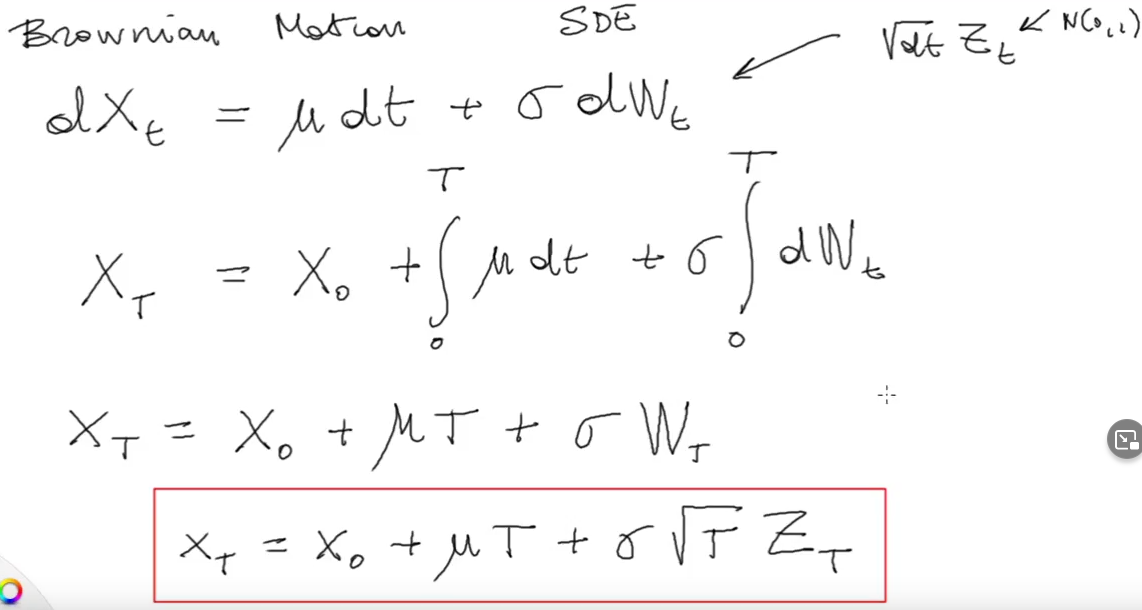 Brownian Motion SDE
√dt Z_t ↙ N(0,1)
dX_t = μ dt + σ dW_t
X_T = X_0 + ∫_0^T μ dt + σ ∫_0^T dW_t
X_T = X_0 + μT + σ W_T
x_T = x_0 + μT + σ √T Z_T